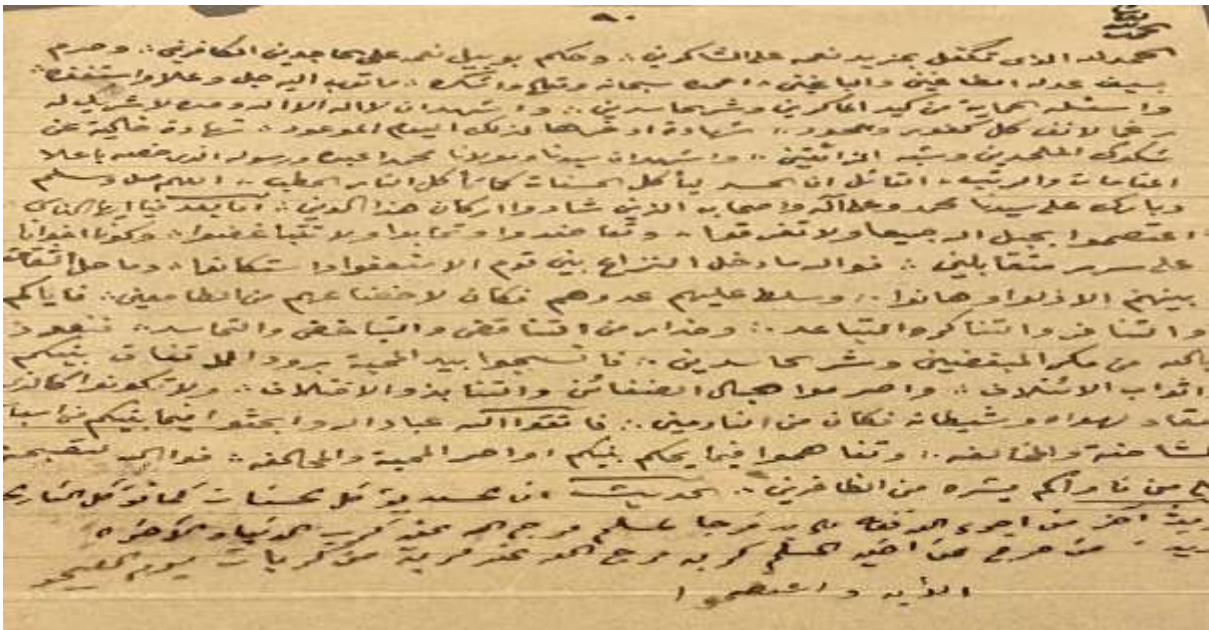 ٨٠
الحمد لله الذي تكفل بمزيد نعمه على الشاكرين ∴ وحكم بوبيل نقمه على الجاحدين الكافرين ∴ وصرم
بسيف عدله الطاغين والباغين ∴ احمده سبحانه وتعالى واشكره ∴ واتوب اليه جل وعلا واستغفره
واسئله الحماية من كيد الماكرين وشر الحاسدين ∴ واشهد ان لا اله الا الله وحده لا شريك له
رغما لانف كل كفور وجحود ∴ شهادة ادخرها لذلك اليوم الموعود ∴ شهادة خالية عن
شكوك الملحدين وشبه الزائغين ∴ واشهد ان سيدنا ومولانا محمدا عبده ورسوله الذي خصه باعلا
المقامات والرتب ∴ القائل ان الحسد يأكل الحسنات كما تأكل النار الحطب ∴ اللهم صل وسلم
وبارك على سيدنا محمد وعلى اله واصحابه الذين شادوا اركان هذا الدين ∴ اما بعد فيا ايها الناس
اعتصموا بحبل الله جميعا ولا تفرقوا ∴ وتعاضدوا وتحابوا ولا تتباغضوا ∴ وكونوا اخوانا
على سرر متقابلين ∴ فوالله ما دخل النزاع بين قوم الا ضعفوا واستكانوا ∴ وما حل الشقاق
بينهم الا ذلوا وهانوا ∴ وسلط عليهم عدوهم فكان لاخضاعهم من الطامعين ∴ فاياكم
والتنافر والتناكر والتباعد ∴ وحذار من التناقض والتباغض والتحاسد ∴ فنعوذ
بالله من مكر المبغضين وشر الحاسدين ∴ فانسجوا بيد المحبة برود الاتفاق بينكم
اثواب الائتلاف ∴ واصرموا حبال الضغائن والتنابذ والاختلاف ∴ ولا تكونوا كالذي
انقاد لهواه وشيطانه فكان من النادمين ∴ فاتقوا الله عباد الله وابحثوا فيما بينكم عن اسباب
المشاحنة والمخالفة ∴ وتفاهموا فيما يحكم بينكم اواصر المحبة والمحالفة ∴ فوالله لتصبحن
من الظافرين ∴ الحديث ان الحسد يأكل الحسنات كما تأكل النار
من فرج عن اخيه المسلم كربة فرج الله عنه كربة من كربات يوم القيمة
الآية واعتصموا